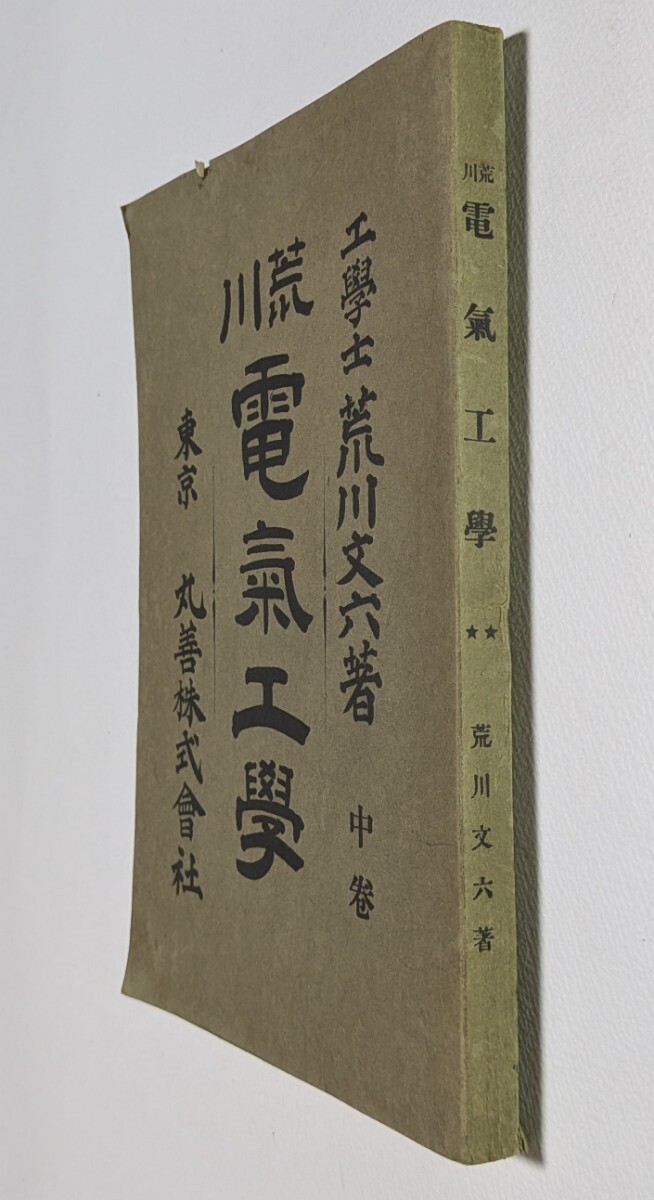 工學士 荒川文六著 中卷
荒川 電氣工學
東京 丸善株式會社
荒川 電氣工學 ★★ 荒川文六著